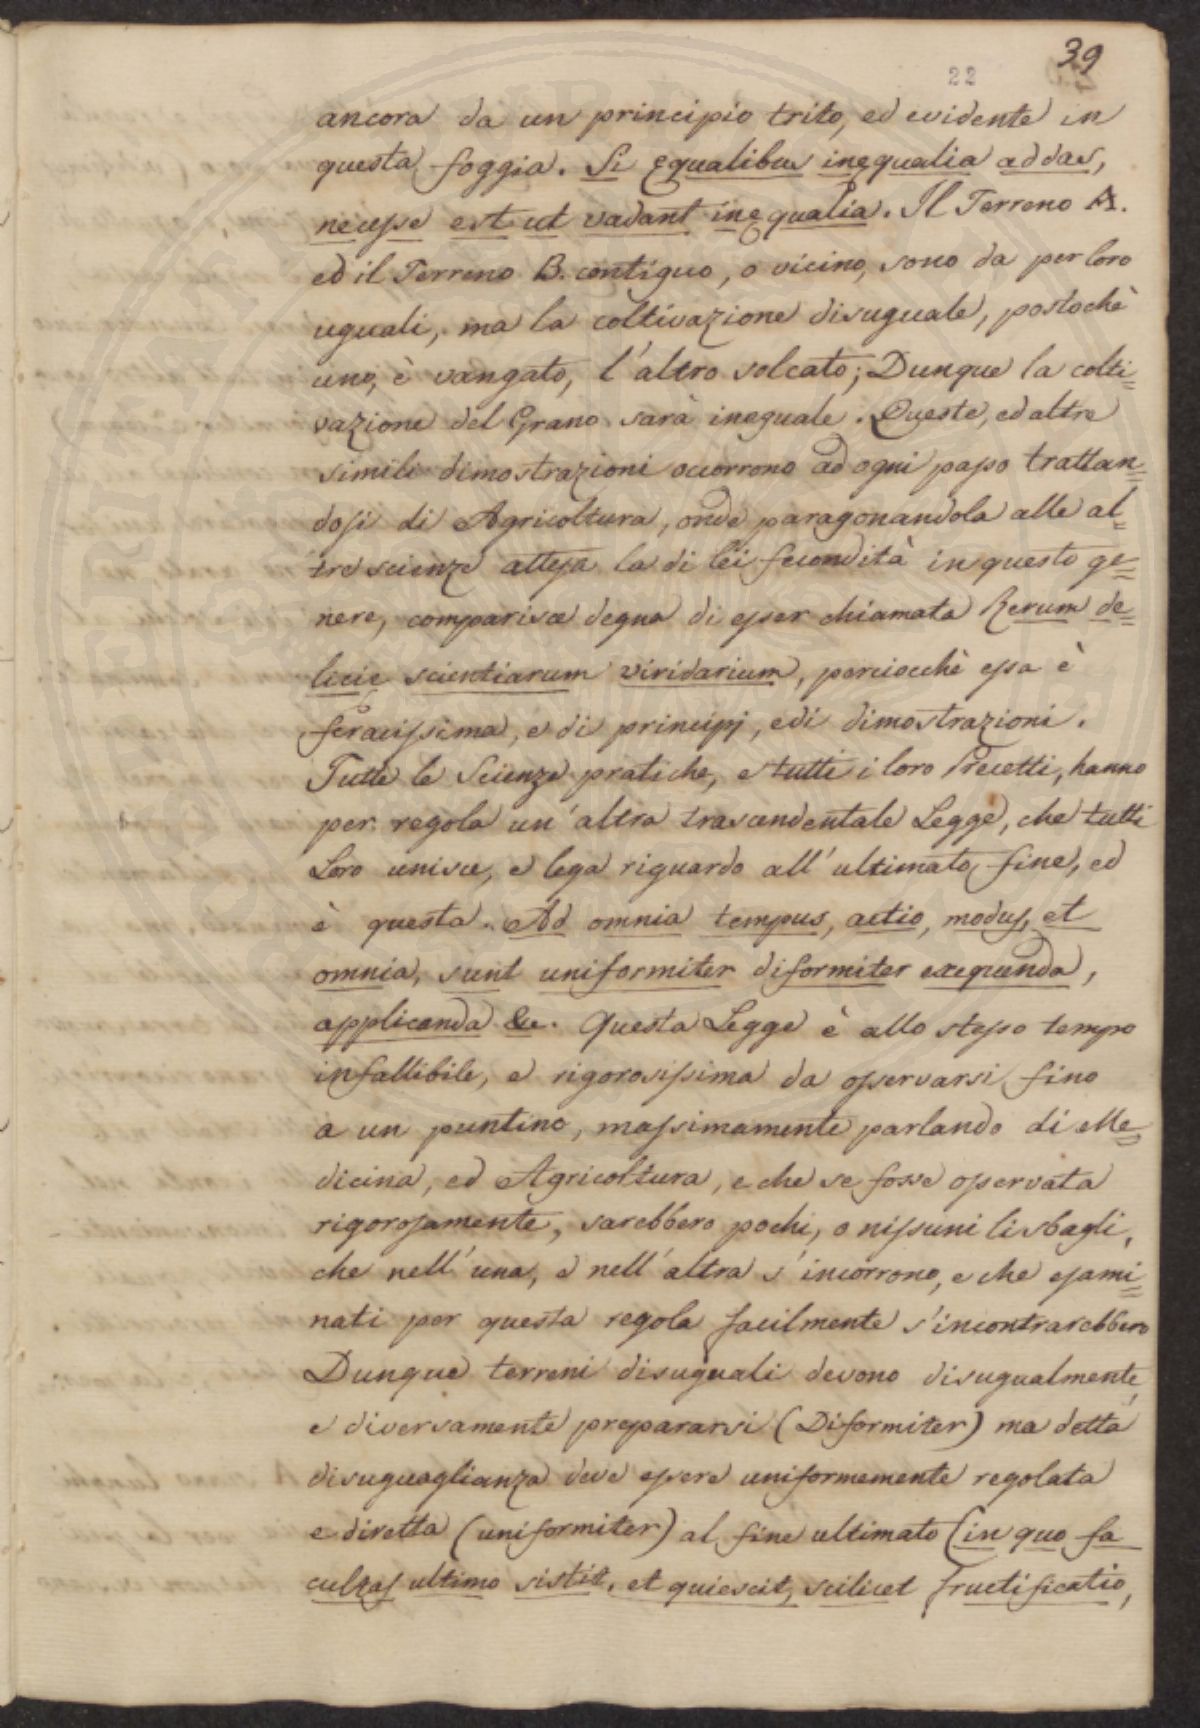 39
22
ancora da un principio trito, ed evidente in
questa foggia. Si ęqualibus inęqualia addas,
necesse est ut vadant inęqualia. Il Terreno A.
ed il Terreno B. contiguo, o vicino, sono da per loro
uguali, ma la coltivazione disuguale, postochè
uno, è vangato, l'altro solcato; Dunque la colti=
vazione del Grano sarà ineguale. Queste, ed altre
simili dimostrazioni occorrono ad ogni passo trattan=
dosi di Agricoltura, onde paragonandola alle al=
tre scienze attesa la di lei fecondità in questo ge=
nere, comparisce degna di esser chiamata Rerum de=
licię scientiarum viridarium, perciocchè essa è
feracissima, e di principj, e di dimostrazioni.
Tutte le Scienze pratiche, e tutti i loro Precetti, hanno
per regola un'altra trascendentale Legge, che tutti
Loro unisce, e lega riguardo all'ultimato fine, ed
è questa. Ad omnia tempus, actio, modus, et
omnia, sunt uniformiter diformiter exequenda,
applicanda &c. Questa Legge è allo stesso tempo
infallibile, e rigorosissima da osservarsi fino
a un puntino, massimamente parlando di Me=
dicina, ed Agricoltura, e che se fosse osservata
rigorosamente, sarebbero pochi, o nissuni li sbagli,
che nell'una, e nell'altra s'incorrono, e che esami=
nati per questa regola facilmente s'incontrarebbero
Dunque terreni disuguali devono disugualmente,
e diversamente prepararsi (Diformiter) ma detta
disuguaglianza deve essere uniformemente regolata
e diretta (uniformiter) al fine ultimato (in quo fa
cultas ultimo sistit, et quiescit, scilicet fructificatio,